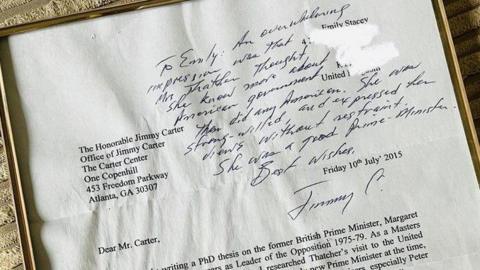 Emily Stacey
To Emily: An overwhelming
impression was that
Mrs. Thatcher thought
she knew more about
American government
than did any American. She was
strong-willed, and expressed her
views without restraint.
She was a good Prime-Minister.
Best Wishes,
Jimmy C.
The Honorable Jimmy Carter
Office of Jimmy Carter
The Carter Center
One Copenhill
453 Freedom Parkway
Atlanta, GA 30307
Friday 10th July 2015
Dear Mr. Carter,
writing a PhD thesis on the former British Prime Minister, Margaret
as Leader of the Opposition 1975-79. As a Masters
researched Thatcher's visit to the United
new Prime Minister at the time,
especially Peter